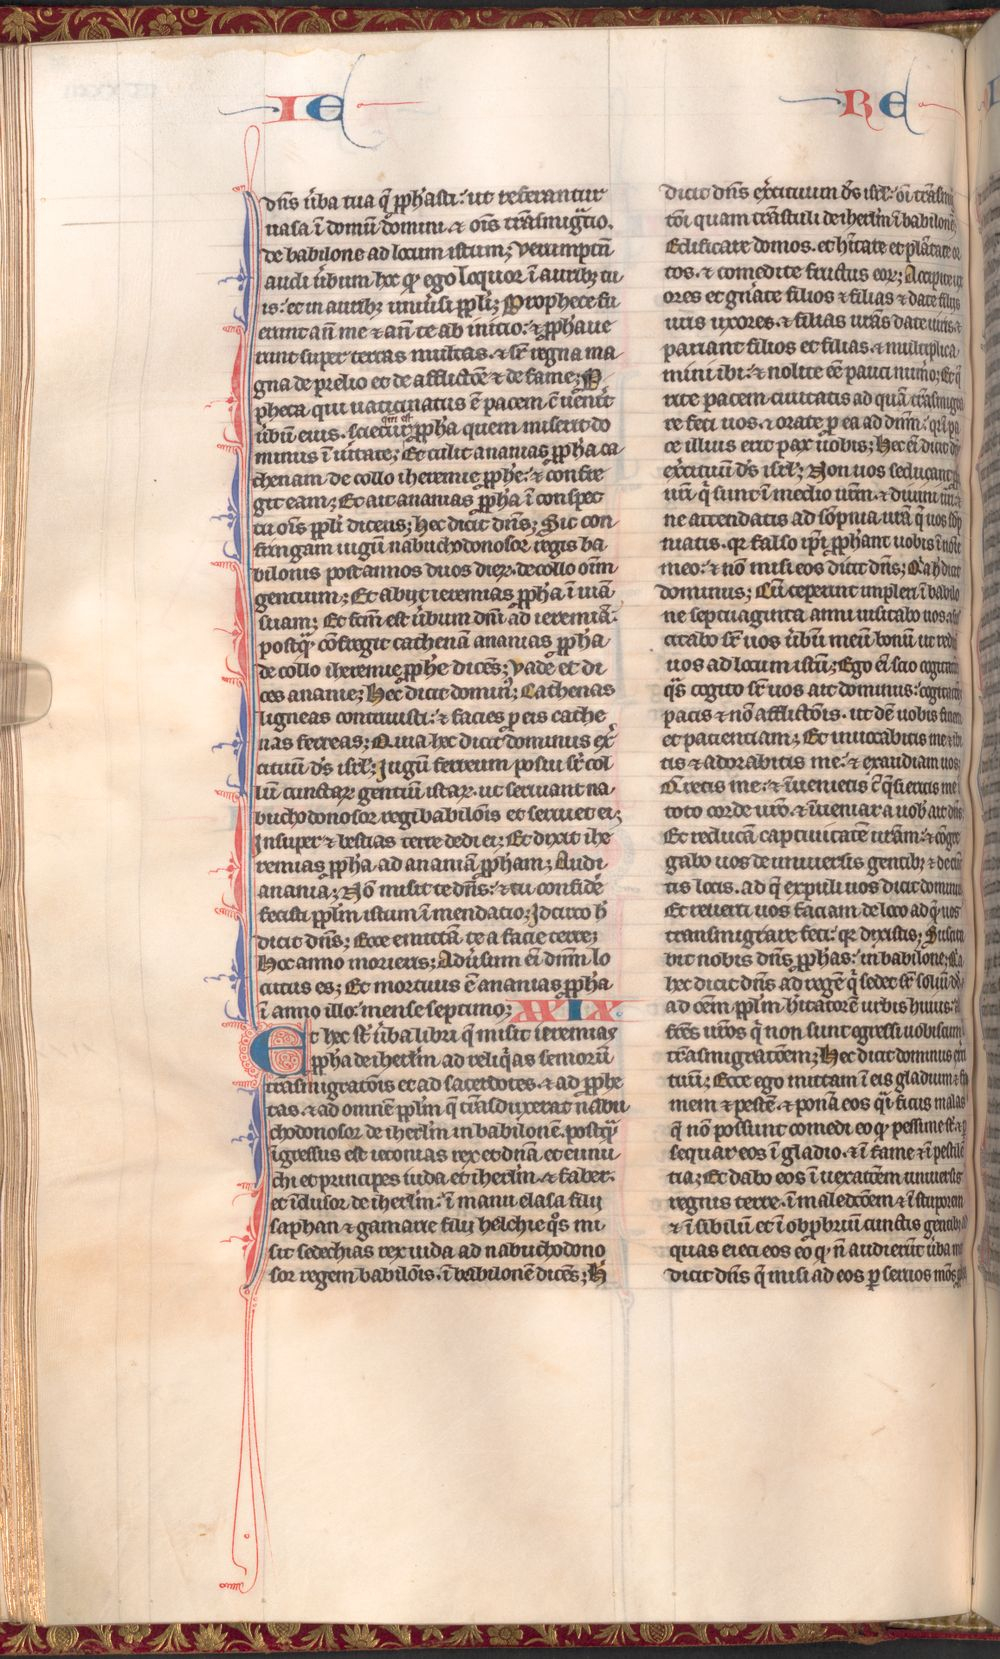 IE RE
dn̄s ṽba tua q̄ ꝓph̾asti: ut referantur
uasa ī domū domini. ⁊ om̄s trāsmigͣtio.
de babilone ad locum istum; Verumptn̄
audi ṽbum hoc qđ ego loquor ī auribꝫ tu
is: et in auribꝫ uniūsi ppl̄i; Prophete fu
erunt an̄ me ⁊ an̄ te ab initio: ⁊ ꝓph̾aue
runt super terras multas. ⁊ sr̄ regna ma
gna de prelio et de afflictōe ⁊ de fame; P
pheta qui uaticinatus ē pacem c̄ uen̾it
ṽbū eius. scietur ꝓph̾a quem miserit do
minus ī ũitate; Et tulit ananias ꝓph̾a ca
chenam de collo iheremie ꝓph̾e: ⁊ cōfre
git eam; Et ait ananias ꝓph̾a ī conspec
tu om̄s ppl̄i dicens; Hec dicit dn̄s; Sic con
fringam iugū nabuchodonosor regis ba
bilonis post annos duos dieꝝ. de collo om̄m
gentium; Et abijt ieremias ꝓph̾a ī uiā
suam; Et fc̄m est ṽbum dn̄i ad ieremiā.
postqͣ cōfregit cathenā ananias ꝓph̾a
de collo iheremie ꝓph̾e dicēs; Vade et di
ces ananie; Hec dicit domin᷒; Cathenas
ligneas contriuisti: ⁊ facies ꝓ eis cathe
nas ferreas; Quia hec dicit dominus ex̾
cituū d̄s isrl̄; Iugū ferreum posui sr̄ col
lū cunctaꝝ gentiū istaꝝ. ut seruiant na
buchodonosor regi babilōis et seruiet ei;
Insuper ⁊ bestias terre dedi ei; Et dixit ihe
remias ꝓph̾a. ad ananiā ꝓph̾am; Audi
anania; Nō misit te dn̄s: ⁊ tu confidē
fecisti ppl̄m istum ī mendatio; Idcirco h̾
dicit dn̄s; Ecce emittā te a facie terre;
Hoc anno morieris; Adũsum ei̅ dnm̄ lo
cutus es; Et mortuus ē ananias ꝓph̾a
ī anno illo: mense septimo; XXIX
Et hec st̄ ṽba libri q̄ misit ieremias
ꝓph̾a de ihrl̄m ad reliq̾as seniorū
trāsmigratōis et ad sacerdotes. ⁊ ad ꝓph̾e
tas. ⁊ ad omnē ppl̄m q̄ trāsduxerat nabu
chodonosor de iherl̄m in babilonē. postqͣ
īgressus est ieconias rex et dn̄a et eunu
chi et principes iuda et iherl̄m. ⁊ faber.
et īclusor de iherl̄m: ī manu elasa filij
saphan ⁊ gamarie filij helchie qͦs mi
sit sedechias rex iuda ad nabuchodono
sor regem babilōis. ī babilonē dicēs; H̾
dicit dn̄s ex̾cituum d̄s isrl̄: oī trāsmi
tōi quam trāstuli de iherl̄m ī babilonē
Edificate domos. et hītate et plātate or
tos. ⁊ comedite fructus eoꝝ; Accipite ux
ores et gn̾ate filios ⁊ filias ⁊ date filijs
uris uxores. ⁊ filias urās date uiris. ⁊
pariant filios et filias. ⁊ multiplica
mini ibi: ⁊ nolite ēe pauci num̾o; Et q̄
rite pacem ciuitatis ad quā trāsmigra
re feci uos. ⁊ orate ꝓ ea ad dnm̄: qr̄ ī pa
ce illius erit pax uobis; Hec ei̅ dicit dn̄s
ex̾cituū d̄s isrl̄; Non uos seducant ꝓph̾e
uri̅ q̄ sunt ī medio urm̄. ⁊ diuini uri̅. ⁊
ne attendatis ad sōpnia urā q̄ uos sōp
niatis. qr̄ falso ip̄i ꝓph̾ant uobis ī noīe
meo: ⁊ nō misi eos dicit dn̄s; Q̾ h̾ dicit
dominus; Cū ceperint impleri ī babilo
ne septuaginta anni uisitabo uos. ⁊ su
citabo sr̄ uos ṽbū meū bonū. ut redu
uos ad locum istū; Ego ei̅ scio cogitatō
q̄s cogito sr̄ uos ait dominus: cogitatōes
pacis ⁊ nō afflictōis. ut dē uobis finem
et patientiam; Et inuocabitis me ⁊ ibi
tis ⁊ adorabitis me: ⁊ exaudiam uos
Q̄retis me: ⁊ īuenietis cū q̄sieritis me
toto corde uro. ⁊ īueniar a uob̾ ait dn̄s
Et reducā captiuitatē urām: ⁊ cōgre
gabo uos de uniuersis gentibꝫ ⁊ de cūc
tis locis. ad q̄ expuli uos dicit dominus
Et reuerti uos faciam de loco ad q̄ uos
transmigrare feci: qr̄ dixistis; Suscita
bit nobis dn̄s ꝓph̾as: in babilone; Q̾
hec dicit dn̄s ad regē q̄ sedet sr̄ soliū dd̄
ad oēm ppl̄m h̾itatorē urbis huius: ad
fr̄es uros q̄ non sunt egressi uobiscum ī
trāsmigratōem; Hec dicit dominus ex̾ci
tuū; Ecce ego mittam ī eis gladium ⁊ fa
mem ⁊ pestē. ⁊ ponā eos q̄i ficus malas
q̄ nō possunt comedi eo qđ pessime st̄. ⁊ ꝑ
sequar eos ī gladio. ⁊ ī fame ⁊ ī pestilē
tia; Et dabo eos ī uexatōem uniuersis
regnis terre. ī maledctōem ⁊ ī stuporem
⁊ ī sibilū et ī obꝓbriū cunctis gentibꝫ ad
quas eieci eos eo qđ n̄ audierīt ṽba mea
dicit dn̄s q̄ misi ad eos ꝑ seruos meos ꝓph̾